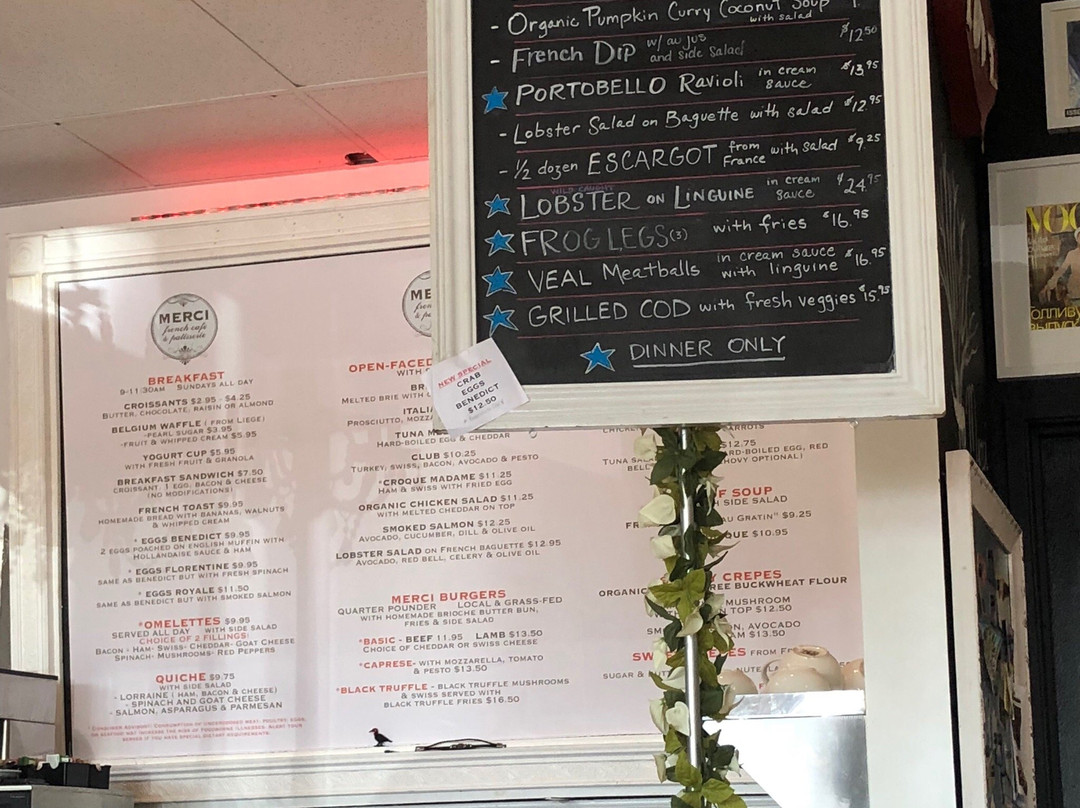 - Organic Pumpkin Curry Coconut Soup
with salad
- French Dip w/ au jus and side salad $12.50
PORTOBELLO Ravioli in cream sauce $13.95
- Lobster Salad on Baguette with salad $12.95
- 1/2 dozen ESCARGOT from France with salad $9.25
WILD CAUGHT
LOBSTER ON LINGUINE in cream sauce $24.95
FROG LEGS (3) with fries $16.95
VEAL Meatballs in cream sauce with linguine $16.95
GRILLED COD with fresh veggies $15.95
DINNER ONLY
NEW SPECIAL
CRAB
EGGS
BENEDICT
$12.50
MERCI
french café
& patisserie
BREAKFAST
9-11:30AM SUNDAYS ALL DAY
CROISSANTS $2.95 - $4.25
BUTTER, CHOCOLATE, RAISIN OR ALMOND
BELGIUM WAFFLE ( FROM LIEGE)
-PEARL SUGAR $3.95
-FRUIT & WHIPPED CREAM $5.95
YOGURT CUP $5.95
WITH FRESH FRUIT & GRANOLA
BREAKFAST SANDWICH $7.50
CROISSANT, 1 EGG, BACON & CHEESE
(NO MODIFICATIONS)
FRENCH TOAST $9.95
HOMEMADE BREAD WITH BANANAS, WALNUTS
& WHIPPED CREAM
* EGGS BENEDICT $9.95
2 EGGS POACHED ON ENGLISH MUFFIN WITH
HOLLANDAISE SAUCE & HAM
* EGGS FLORENTINE $9.95
SAME AS BENEDICT BUT WITH FRESH SPINACH
* EGGS ROYALE $11.50
SAME AS BENEDICT BUT WITH SMOKED SALMON
*OMELETTES $9.95
SERVED ALL DAY WITH SIDE SALAD
CHOICE OF 2 FILLINGS:
BACON - HAM- SWISS- CHEDDAR- GOAT CHEESE
SPINACH- MUSHROOMS- RED PEPPERS
QUICHE $9.75
WITH SIDE SALAD
- LORRAINE ( HAM, BACON & CHEESE)
- SPINACH AND GOAT CHEESE
- SALMON, ASPARAGUS & PARMESAN
* CONSUMER ADVISORY! CONSUMPTION OF UNDERCOOKED MEAT, POULTRY, EGGS,
OR SEAFOOD MAY INCREASE THE RISK OF FOODBORNE ILLNESSES. ALERT YOUR
SERVER IF YOU HAVE SPECIAL DIETARY REQUIREMENTS.
ME
OPEN-FACED
WITH
BR
MELTED BRIE WITH
ITALI
PROSCIUTTO, MOZZA
TUNA M
HARD-BOILED EGG & CHEDDAR
CLUB $10.25
TURKEY, SWISS, BACON, AVOCADO & PESTO
*CROQUE MADAME $11.25
HAM & SWISS WITH FRIED EGG
ORGANIC CHICKEN SALAD $11.25
WITH MELTED CHEDDAR ON TOP
SMOKED SALMON $12.25
AVOCADO, CUCUMBER, DILL & OLIVE OIL
LOBSTER SALAD ON FRENCH BAGUETTE $12.95
AVOCADO, RED BELL, CELERY & OLIVE OIL
MERCI BURGERS
QUARTER POUNDER LOCAL & GRASS-FED
WITH HOMEMADE BRIOCHE BUTTER BUN,
FRIES & SIDE SALAD
*BASIC - BEEF 11.95 LAMB $13.50
CHOICE OF CHEDDAR OR SWISS CHEESE
*CAPRESE- WITH MOZZARELLA, TOMATO
& PESTO $13.50
*BLACK TRUFFLE - BLACK TRUFFLE MUSHROOMS
& SWISS SERVED WITH
BLACK TRUFFLE FRIES $16.50
CARROTS
$12.75
TUNA SAL RD-BOILED EGG, RED
BELL HOVY OPTIONAL)
F SOUP
H SIDE SALAD
FR AU GRATIN" $9.25
QUE $10.95
Y CREPES
ORGANIC REE BUCKWHEAT FLOUR
MUSHROOM
TOP $12.50
SM ON, AVOCADO
AM $13.50
SW EPES FROM
SUGAR & NUTELLA
VOG
ГОЛЛИВУ
ВЫПУСК